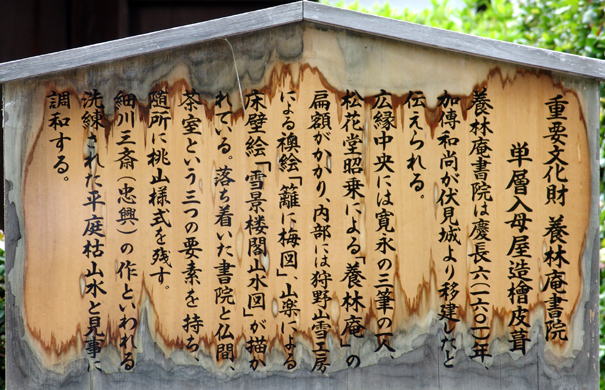 重要文化財 養林庵書院
単層入母屋造檜皮葺
養林庵書院は慶長六(一六〇一)年、
加傳和尚が伏見城より移建したと
伝えられる。
広縁中央には寛永の三筆の一人
松花堂昭乗による「養林庵」の
扁額がかかり、内部には狩野山雪工房
による襖絵「籬に梅図」、山楽による
床壁絵「雪景楼閣山水図」が描か
れている。落ち着いた書院と仏間、
茶室という三つの要素を持ち、
随所に桃山様式を残す。
細川三斎(忠興)の作といわれる
洗練された平庭枯山水と見事に
調和する。